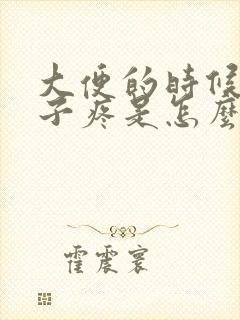 大便的時候
子疼是怎麼
霍震寰